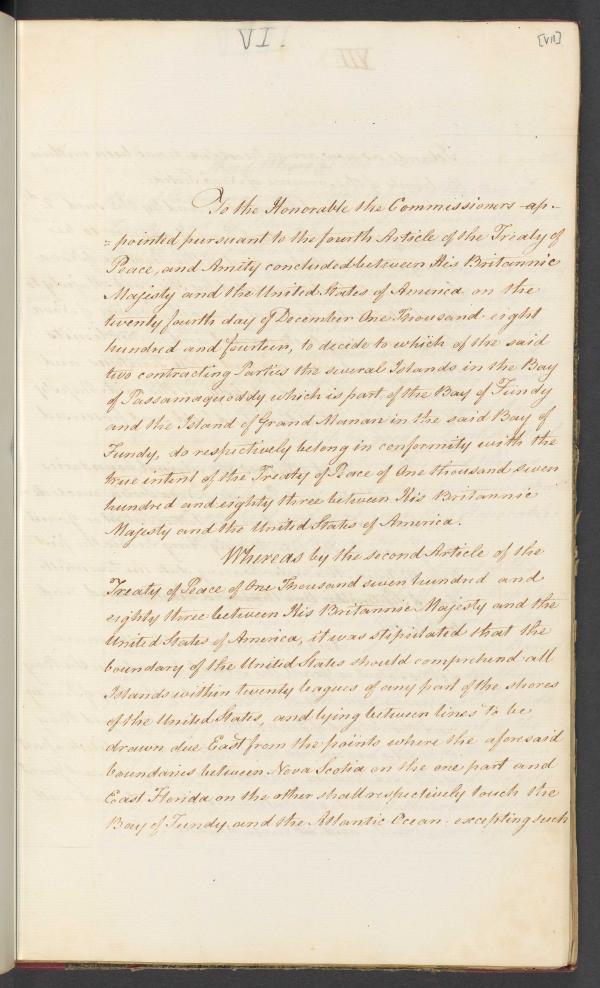 VI.
[VII]
To the Honorable the Commissioners ap-
=pointed pursuant to the fourth Article of the Treaty of
Peace, and Amity concluded between His Britannic
Majesty and the United States of America on the
twenty fourth day of December One Thousand eight
hundred and fourteen, to decide to which of the said
two contracting Parties the several Islands in the Bay
of Passamaquoddy which is part of the Bay of Fundy
and the Island of Grand Manan in the said Bay of
Fundy, do respectively belong in conformity with the
true intent of the Treaty of Peace of One thousand seven
hundred and eighty three between His Britannic
Majesty and the United States of America.
Whereas by the second Article of the
Treaty of Peace of One Thousand seven hundred and
eighty three between His Britannic Majesty and the
United States of America, it was stipulated that the
boundary of the United States should comprehend all
Islands within twenty leagues of any part of the shores
of the United States, and lying between lines to be
drawn due East from the points where the aforesaid
boundaries between Nova Scotia on the one part and
East Florida on the other shall respectively touch the
Bay of Fundy and the Atlantic Ocean excepting such